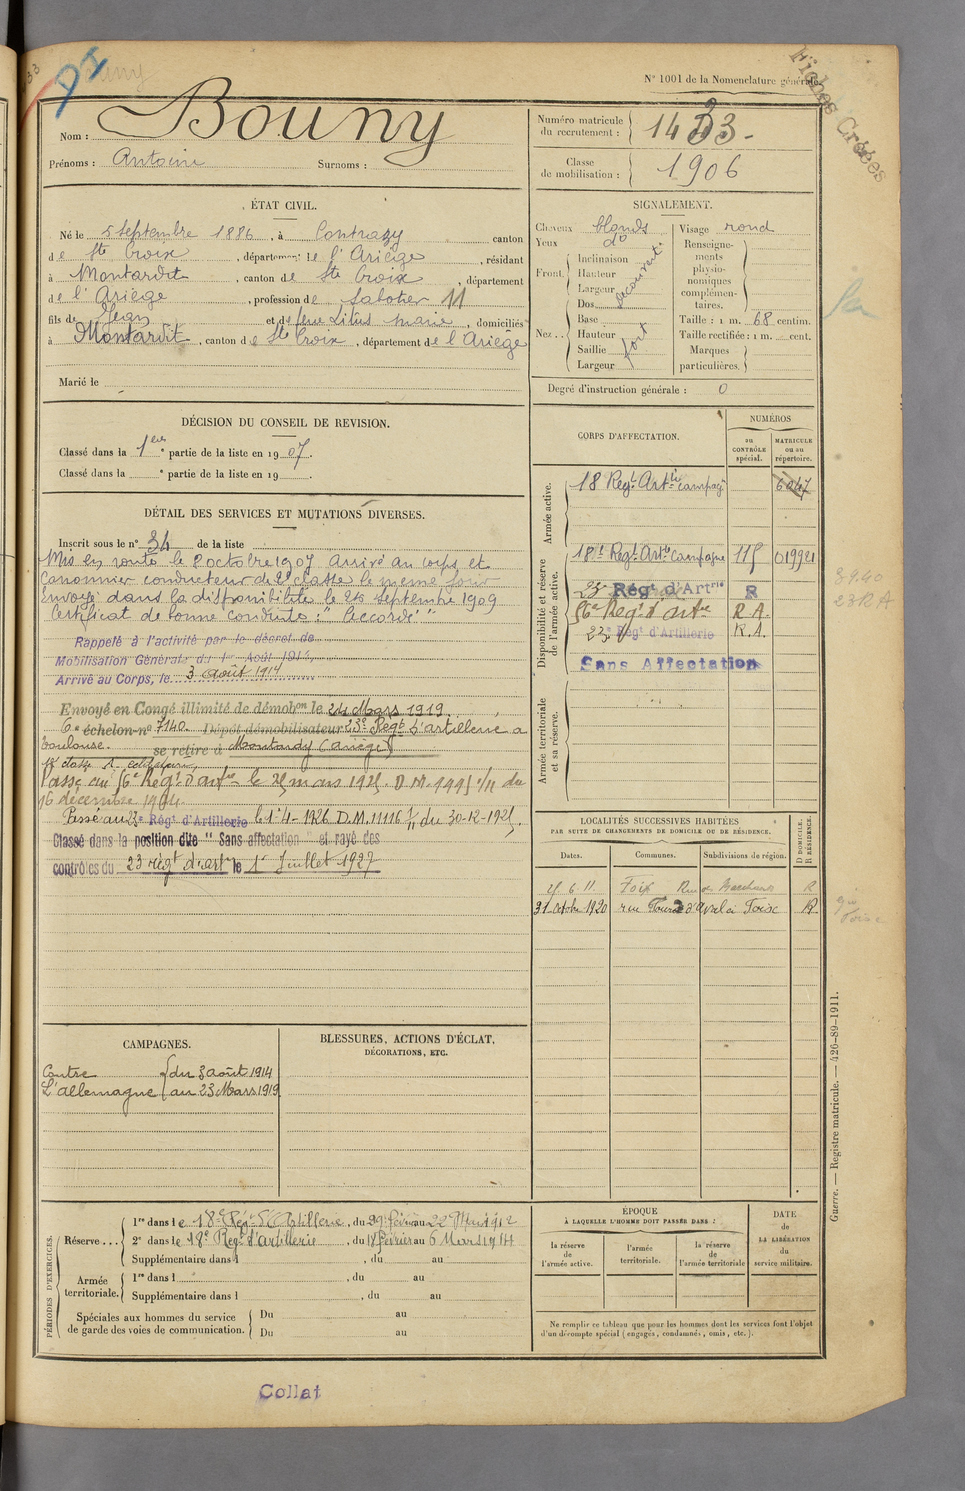 N° 1001 de la Nomenclature générale.
Fiches Créées
Nom : Bouny
Prénoms : Antoine Surnoms :
Numéro matricule du recrutement : 1433
Classe de mobilisation : 1906
ÉTAT CIVIL.
Né le 5 septembre 1886, à Contrazy canton
de Ste Croix, département de l'Ariège, résidant
à Montardit, canton de Ste Croix, département
de l'Ariège, profession de Sabotier 11
fils de Jean et de feue Marie, domiciliés
à Montardit, canton de Ste Croix, département de l'Ariège
Marié le
SIGNALEMENT.
Cheveux blonds
Yeux do
Front. Inclinaison
Hauteur
Largeur
découvert
Nez.. Dos
Base
Hauteur
Saillie
Largeur
fort
Visage rond
Renseignements physionomiques complémentaires.
Taille : 1 m. 68 centim.
Taille rectifiée : 1 m. cent.
Marques particulières.
Degré d'instruction générale : 0
DÉCISION DU CONSEIL DE REVISION.
Classé dans la 1ere partie de la liste en 1907.
Classé dans la e partie de la liste en 19 .
DÉTAIL DES SERVICES ET MUTATIONS DIVERSES.
Inscrit sous le n° 34 de la liste
Mis en route le 8 octobre 1907 arrivé au corps et
canonnier conducteur de 2e classe le même jour
Envoyé dans la disponibilité le 25 septembre 1909
Certificat de bonne conduite : "Accordé"
Rappelé à l'activité par le décret de
Mobilisation Générale du 1er Août 1914.
Arrivé au Corps, le 3 août 1914
Envoyé en Congé illimité de démobon le 24 Mars 1919.
6e échelon-n° 7140 Dépôt démobilisateur 23e Regt d'artillerie à
Toulouse. se retire à (Ariège)
Passé au 56e Regt d'artie le 25 mars 1925. D.M. du
16 décembre 1924.
Passé au 23e Régt d'Artillerie le 1-4-1926 D.M. 11116 du 30-12-1925.
Classé dans la position dite "Sans affectation" et rayé des
contrôles du 23 régt d'artie le 1er Juillet 1927
CORPS D'AFFECTATION.
NUMÉROS
au CONTRÔLE spécial.
MATRICULE ou au répertoire.
Armée active.
18 Regt Artie campagne 6047
Disponibilité et réserve de l'armée active.
18e Regt Artie campagne 115 019921
23e Régt d'Artrie R
56e Regt d'artie R.A.
23e Régt d'Artillerie R.A.
Sans Affectation
Armée territoriale et sa réserve.
39.40
23 R A
LOCALITÉS SUCCESSIVES HABITÉES
PAR SUITE DE CHANGEMENTS DE DOMICILE OU DE RÉSIDENCE.
Dates. Communes. Subdivisions de région. D DOMICILE. R RÉSIDENCE.
6. 11. Foix Rue des R
31 octobre 1920 rue à Foix R
CAMPAGNES.
Contre L'allemagne du 3 août 1914 au 23 Mars 1919
BLESSURES, ACTIONS D'ÉCLAT,
DÉCORATIONS, ETC.
PÉRIODES D'EXERCICES.
Réserve... 1re dans le 18e Régt d'Artillerie, du 29 février au 22 Mars 1912
2e dans le 18e Regt d'artillerie, du 18 février au 6 Mars 1914
Supplémentaire dans l , du au
Armée territoriale. 1re dans l , du au
Supplémentaire dans l , du au
Spéciales aux hommes du service de garde des voies de communication. Du au
Du au
ÉPOQUE
À LAQUELLE L'HOMME DOIT PASSER DANS :
la réserve de l'armée active.
l'armée territoriale.
la réserve de l'armée territoriale
DATE de LA LIBÉRATION du service militaire.
Ne remplir ce tableau que pour les hommes dont les services font l'objet
d'un décompte spécial (engagés, condamnés, omis, etc.).
Guerre. — Registre matricule. — 426-89-1911.
Collat